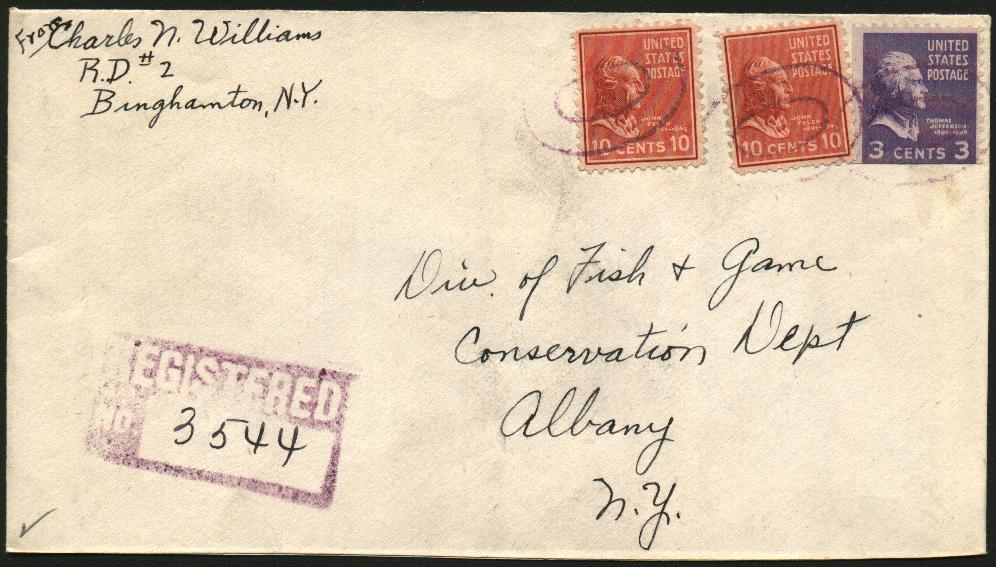 From Charles N. Williams
R.D. #2
Binghamton, N.Y.
UNITED
STATES
POSTAGE
JOHN
10 CENTS 10
UNITED
STATES
POSTAGE
JOHN
TYLER
10 CENTS 10
UNITED
STATES
POSTAGE
THOMAS
JEFFERSON
1801-1809
3 CENTS 3
Div. of Fish & Game
Conservation Dept
Albany
N.Y.
REGISTERED
NO. 3544